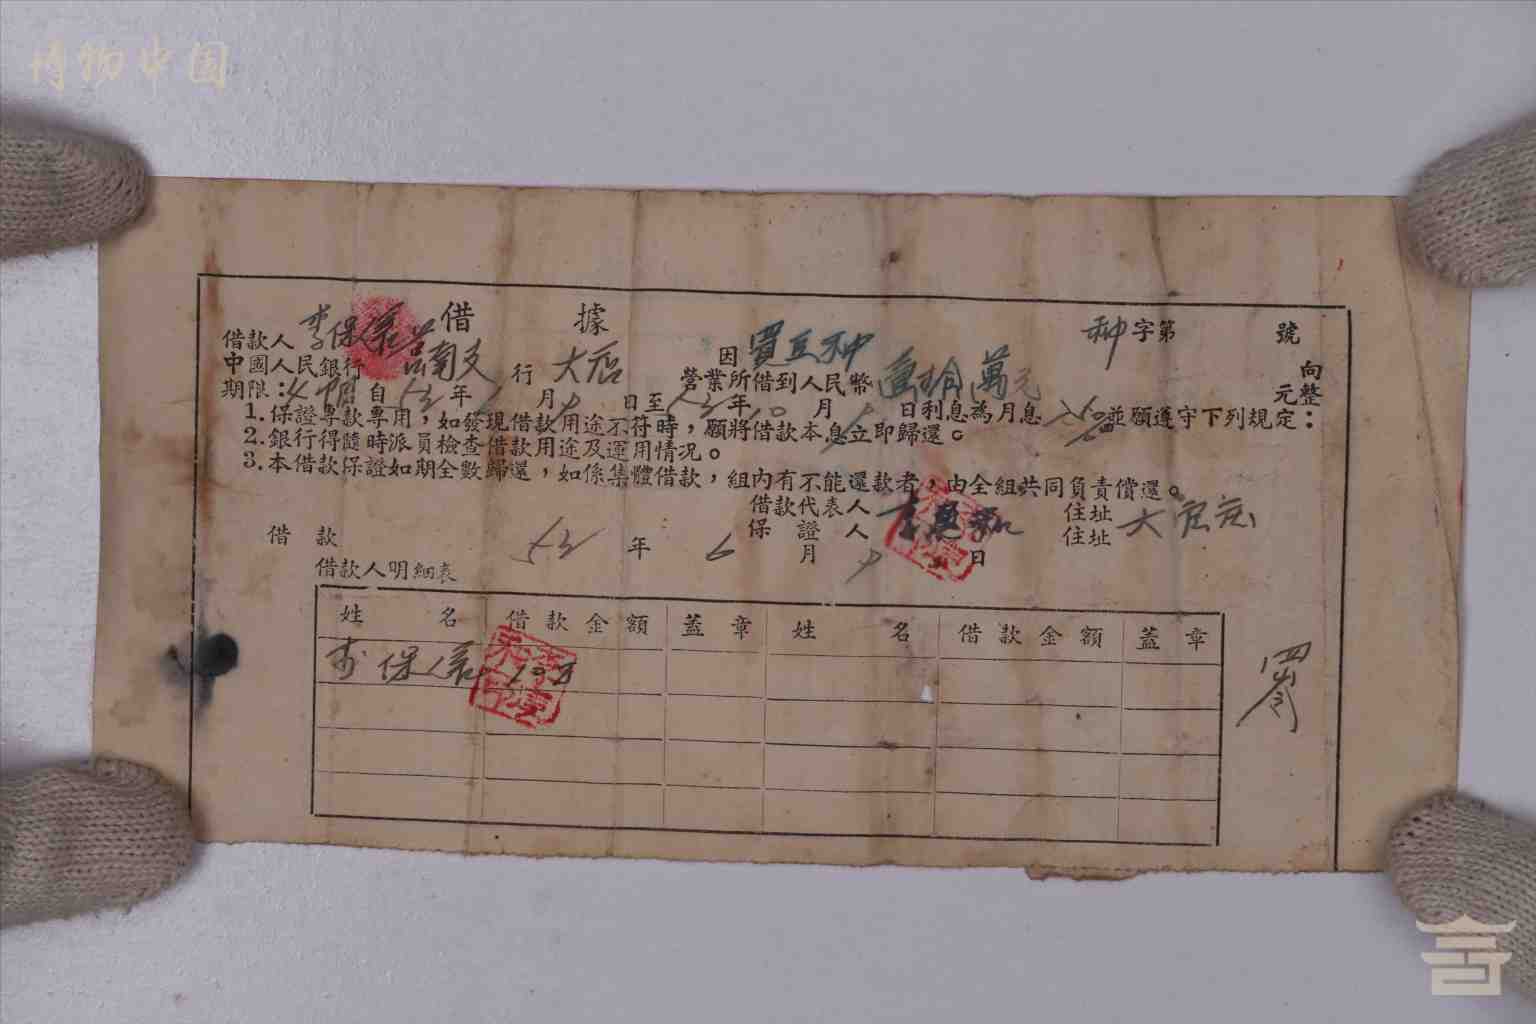 博物中国
借 據
种字第 號
借款人 李保 因 買豆种 向
中國人民銀行 莒南支 行 大店 營業所借到人民幣 壹拾萬元 元整
期限： 自 53 年 月 日至 53 年 10 月 日利息為月息 並願遵守下列規定：
1. 保證專款專用，如發現借款用途不符時，願將借款本息立即歸還。
2. 銀行得隨時派員檢查借款用途及運用情況。
3. 本借款保證如期全數歸還，如係集體借款，組內有不能還款者，由全組共同負責償還。
借款代表人 住址
保 證 人 住址 大
借 款 53 年 6 月 日
借款人明細表
姓 名 借款金額 蓋章 姓 名 借款金額 蓋章
李保